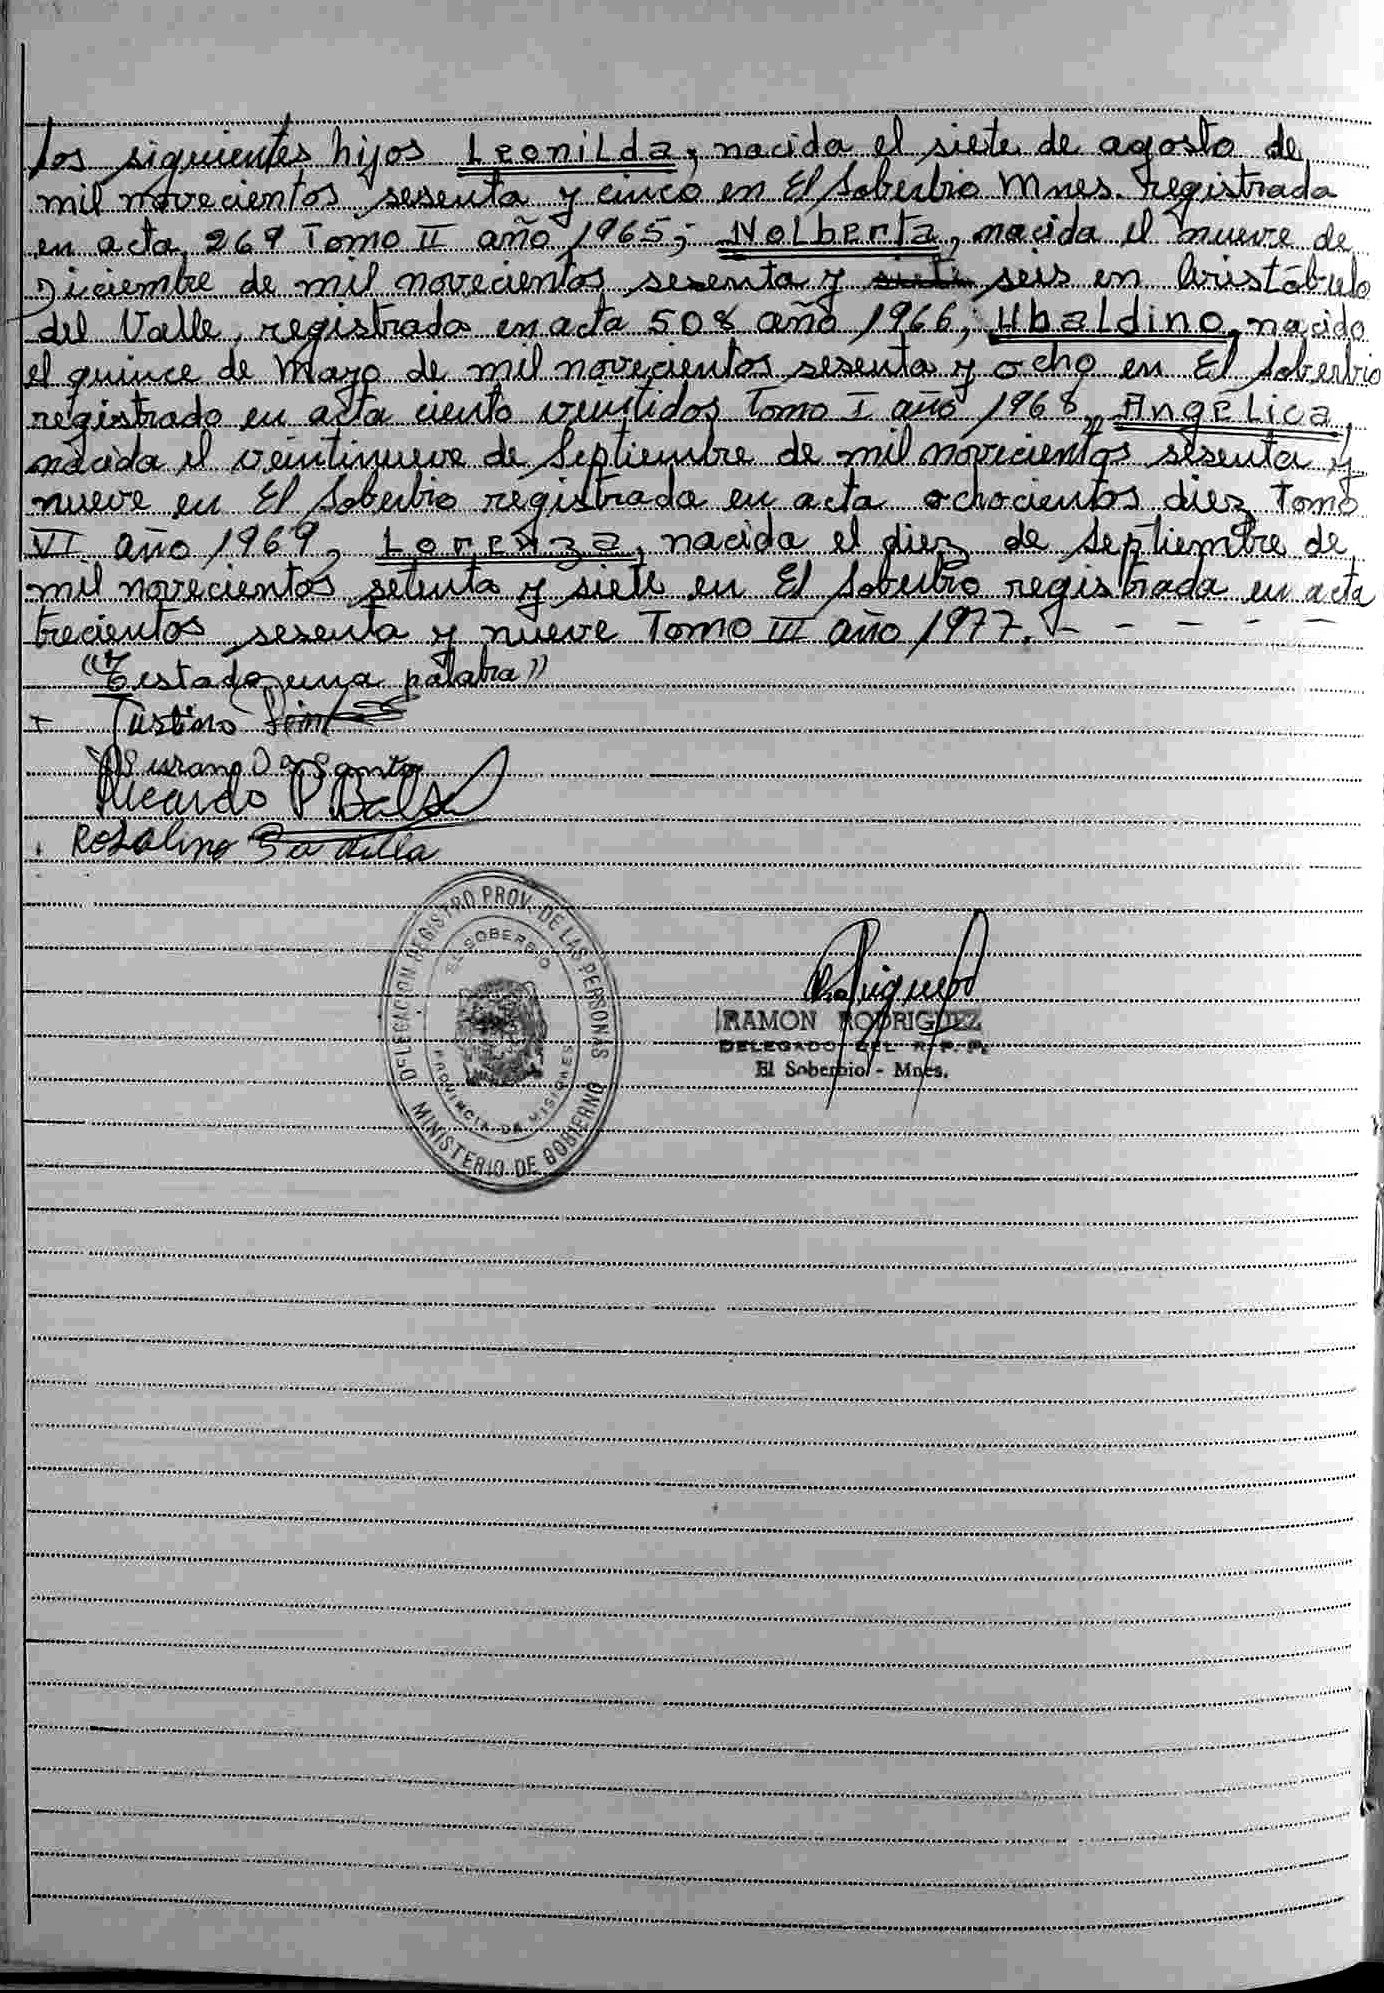 los siguientes hijos Leonilda, nacida el siete de agosto de
mil novecientos sesenta y cinco en El Soberbio Mnes. registrada
en acta 269 Tomo II año 1965; Nolberta, nacida el nueve de
Diciembre de mil novecientos sesenta y siete seis en Aristóbulo
del Valle, registrada en acta 508 año 1966, Ubaldino, nacido
el quince de Mayo de mil novecientos sesenta y ocho en El Soberbio
registrado en acta ciento veintidos Tomo I año 1968, Angélica,
nacida el veintinueve de Septiembre de mil novecientos sesenta y
nueve en El Soberbio registrada en acta ochocientos diez Tomo
VI año 1969, Lorenza, nacida el diez de Septiembre de
mil novecientos setenta y siete en El Soberbio registrada en acta
trecientos sesenta y nueve Tomo III año 1977. - - - - - -
"Testado una palabra"
+ Justino
Ricardo P
Rosalino
DELEGACION REGISTRO PROV. DE LAS PERSONAS
EL SOBERBIO
PROVINCIA DE MISIONES
MINISTERIO DE GOBIERNO
RAMON RODRIGUEZ
DELEGADO DEL R. P. P.
El Soberbio - Mnes.